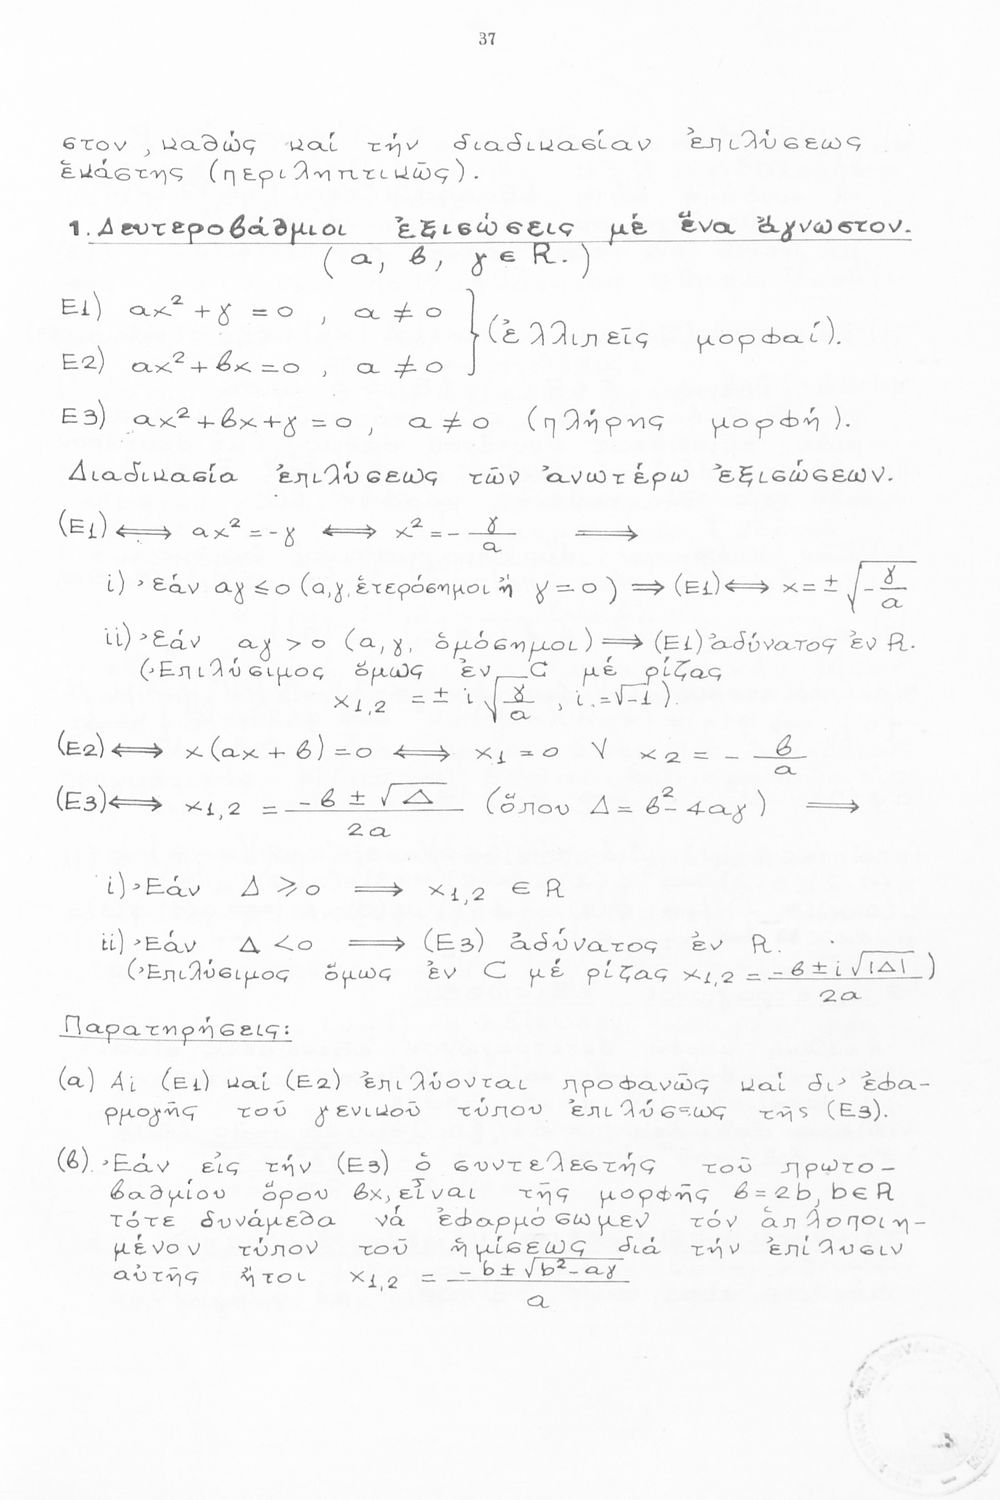 37
στον, καθώς καί τήν διαδικασίαν ἐπιλύσεως
ἑκάστης (περιληπτικῶς).
1. Δευτεροβάθμιοι ἐξισώσεις μέ ἕνα ἄγνωστον.
(α, β, γ ∈ R.)
Ε1) αx² + γ = 0 , α ≠ 0
(ἐλλιπεῖς μορφαί).
Ε2) αx² + βx = 0 , α ≠ 0
Ε3) αx² + βx + γ = 0, α ≠ 0 (πλήρης μορφή).
Διαδικασία ἐπιλύσεως τῶν ἀνωτέρω ἐξισώσεων.
(Ε1) ⟺ αx² = -γ ⟺ x² = - γ/α ⟹
i) Ἐάν αγ ≤ 0 (α,γ, ἑτερόσημοι ἤ γ = 0) ⟹ (Ε1) ⟺ x = ± √(-γ/α)
ii) Ἐάν αγ > 0 (α, γ, ὁμόσημοι) ⟹ (Ε1) ἀδύνατος ἐν R.
(Ἐπιλύσιμος ὅμως ἐν C μέ ρίζας
x1,2 = ± i √(γ/α) , i = √-1).
(Ε2) ⟺ x(αx + β) = 0 ⟺ x1 = 0 ∨ x2 = - β/α
(Ε3) ⟺ x1,2 = (-β ± √Δ)/2α (ὅπου Δ = β² - 4αγ) ⟹
i) Ἐάν Δ ≥ 0 ⟹ x1,2 ∈ R
ii) Ἐάν Δ < 0 ⟹ (Ε3) ἀδύνατος ἐν R.
(Ἐπιλύσιμος ὅμως ἐν C μέ ρίζας x1,2 = (-β ± i √|Δ|)/2α)
Παρατηρήσεις:
(α) Αἱ (Ε1) καί (Ε2) ἐπιλύονται προφανῶς καί δι' ἐφα-
ρμογῆς τοῦ γενικοῦ τύπου ἐπιλύσεως τῆς (Ε3).
(β). Ἐάν εἰς τήν (Ε3) ὁ συντελεστής τοῦ πρωτο-
βαθμίου ὅρου βx, εἶναι τῆς μορφῆς β = 2b, b ∈ R
τότε δυνάμεθα νά ἐφαρμόσωμεν τόν ἁπλοποιη-
μένον τύπον τοῦ ἡμίσεως διά τήν ἐπίλυσιν
αὐτῆς ἤτοι x1,2 = (-b ± √(b² - αγ))/α